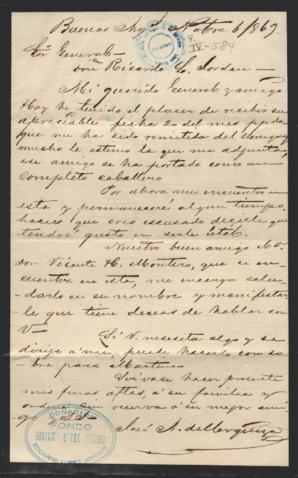 Buenos Ayres Nobre 6/869
Sor General
Don Ricardo L. Jordan
Mi querido General y amigo
Hoy he tenido el placer de recibir su
apreciable fecha 20 del mes ppdo
que me ha sido remitida del
mucho le estimo la que me adjunta
ese amigo se ha portado como un
completo caballero
Por ahora me encuentro en
esta y permaneceré algun tiempo,
que creo escusado decirle que
tendré gusto en serle util.
Nuestro buen amigo el Sr
Don Vicente H. Montero, que se en
cuentra en esta, me encarga salu
darlo en su nombre y manifestar
le que tiene deseos de hablar con
V.
Si V. necesita algo y se
dirije á mi, puede hacerlo con so
bre para
Sirvase hacer presente
mis finas aftos, á su familia y
ordene sin reserva á su mejor ami
go
José A. de
IV-584
DONACIÓN
FONDO
EDUARDO LOPEZ JORDAN